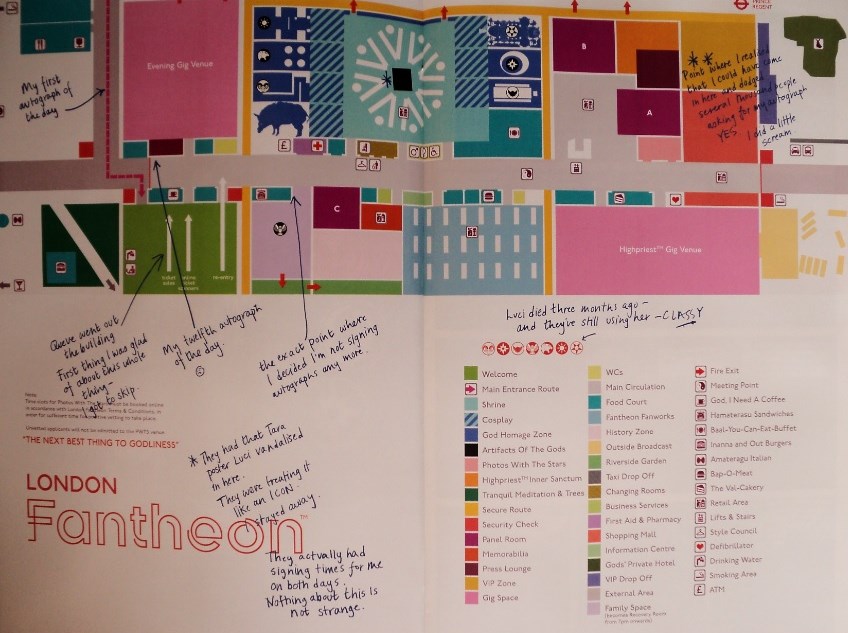 PRINCE
REGENT
My first
autograph of
the day
Evening Gig Venue
B
A
C
**
Point where I realised
that I could have come
in here and dodged
several thousand people
asking for my autograph
YES I did a little
scream
£
Highpriest™ Gig Venue
re-entry
Queue went out
the building
First thing I was glad
of about this whole
thing-
I got to skip.
My twelfth autograph
of the day.
the exact point where
I decided I'm not signing
autographs any more.
Luci died three months ago –
and they're still using her – CLASSY
"THE NEXT BEST THING TO GODLINESS"
LONDON
Fantheon™
* They had that Tara
poster Luci vandalised
in here.
They were treating it
like an ICON.
stayed away.
They actually had
signing times for me
on both days.
Nothing about this is
not strange.
Welcome
Main Entrance Route
Shrine
Cosplay
God Homage Zone
Artifacts Of The Gods
Photos With The Stars
Highpriest™ Inner Sanctum
Tranquil Meditation & Trees
Secure Route
Security Check
Panel Room
Memorabilia
Press Lounge
VIP Zone
Gig Space
WCs
Main Circulation
Food Court
Fantheon Fanworks
History Zone
Outside Broadcast
Riverside Garden
Taxi Drop Off
Changing Rooms
Business Services
First Aid & Pharmacy
Shopping Mall
Information Centre
Gods' Private Hotel
VIP Drop Off
External Area
Family Space
(becomes Recovery Room
from 7pm onwards)
Fire Exit
Meeting Point
God, I Need A Coffee
Hameratsu Sandwiches
Baal-You-Can-Eat-Buffet
Inanna and Out Burgers
Amateragu Italian
Bap-O-Meat
The Val-Cakery
Retail Area
Lifts & Stairs
Style Council
Defibrillator
Drinking Water
Smoking Area
£ ATM